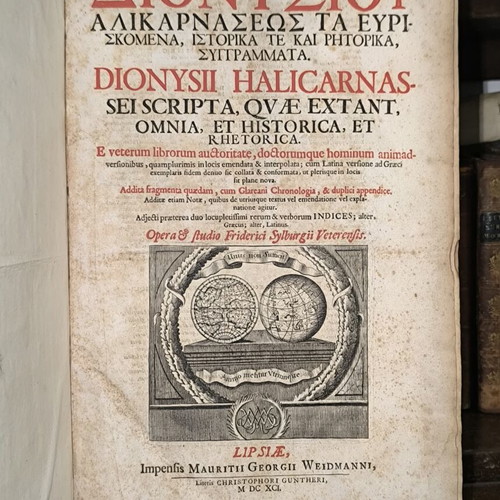 ΔΙΟΝΥΣΙΟΥ
ΑΛΙΚΑΡΝΑΣΕΩΣ ΤΑ ΕΥΡΙ-
ΣΚΟΜΕΝΑ, ΙΣΤΟΡΙΚΑ ΤΕ ΚΑΙ ΡΗΤΟΡΙΚΑ,
ΣΥΓΓΡΑΜΜΑΤΑ.
DIONYSII HALICARNAS-
SEI SCRIPTA, QVÆ EXTANT,
OMNIA, ET HISTORICA, ET
RHETORICA.
E veterum librorum auctoritate, doctorumque hominum animad-
versionibus, quamplurimis in locis emendata & interpolata; cum Latina versione ad Græci
exemplaris fidem denuo sic collata & conformata, ut plerisque in locis
sit plane nova.
Addita fragmenta quædam, cum Glareani Chronologia, & duplici appendice.
Additæ etiam Notæ, quibus de utriusque textus vel emendatione vel expla-
natione agitur.
Adjecti præterea duo locupletissimi rerum & verborum INDICES; alter,
Græcus; alter, Latinus.
Opera & studio Friderici Sylburgii Veterensis.
Unus non sufficit
Animo metitur Utrumque
LIPSIÆ,
Impensis MAURITII GEORGII WEIDMANNI,
Literis CHRISTOPHORI GUNTHERI,
M DC XCI.